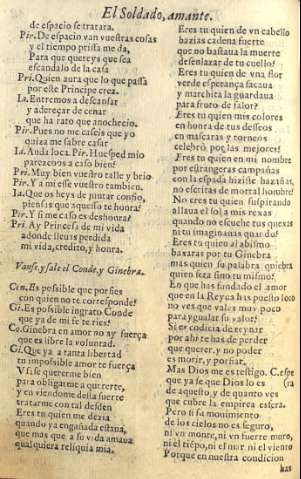 El Soldado, amante.
de espacio se tratara.
Pir. De espacio van vuestras cosas
y el tiempo priſſa me da,
Para que quereys que sea
escandalo de la casa
Pri. Quien aura que lo que passa
por este Principe crea.
Ia. Entremos a descansar
y adereçar de cenar
que ha rato que anochecio.
Pir. Pues no me caseis que yo
quiza me sabre casar
Ia. Anda loca. Pir. Huesped mio
parezcoos a caso bien?
Pri. Muy bien vuestro talle y brio
Pir. Y a mi esse vuestro tambien.
Ia. Que os heys de juntar confio,
piensas que aquesto te honra?
Pir. Y si me caso es deshonra?
Pri. Ay Princesa de mi vida
adonde lleuais perdida
mi vida, credito, y honra.
Vanse, y sale el Conde, y Ginebra.
Gin. Es possible que porfies
con quien no te corresponde?
Gi. Es possible ingrato Conde
que ya de mi fe te ries?
Co. Ginebra en amor no ay fuerça
que es libre la voluntad.
Gi. Que ya a tanta libertad
tu impossible amor te fuerça
Vsse quererme bien
para obligarme a quererte,
y en viendome dessa suerte
tratarme con tal desden
Eres tu quien me dezia
quando ya engañada estaua,
que mas que a su vida amaua
qualquiera reliquia mia.
Eres tu quien de vn cabello
hazias cadena fuerte
que no bastaua la muerte
desenlazar de tu cuello?
Eres tu quien de vna flor
verde esperança sacaua
y marchita la guardaua
para fruto de fabor?
Eres tu quien mis colores
en honra de tus desseos
en mascaras y torneos
celebrò por las mejores!
Eres tu quien en mi nombre
por estrangeras campañas
con la espada hiziste hazañas,
no escritas de mortal hombre?
No eres tu quien suspirando
allaua el sol a mis rexas
quando no escuche tus quexas
ni tu imaginauas quando?
Eres tu quien al abismo
baxaras por tu Ginebra
mas quien su palabra quiebra
quien sera sino tu mismo?
En que has fundado el amor
que en la Reyna has puesto loco
no ves que vales muy poco
para ygualar su valor?
Si es codicia de reynar
por ahi te has de perder
que querer, y no poder
es morir, y porfiar,
Mas Dios me es testigo. C. espe
que ya se que Dios lo es (ra
de aquesto, y de quanto ves
que cubre la empirea esfera.
Pero si su mouimiento
de los cielos no es seguro,
ni vn monte, ni vn fuerte muro,
ni el tiẽpo, ni el mar ni el viento
Porque en nuestra condicion
has